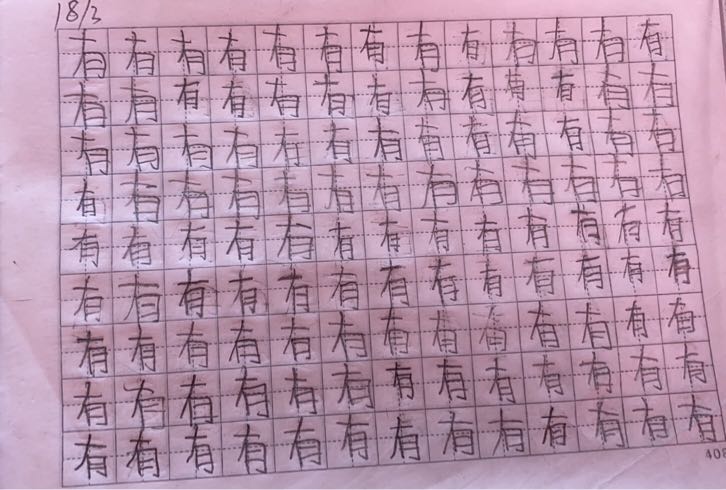 18/3
有有有有有有有有有有有有有
有有有有有有有有有有有有有
有有有有有有有有有有有有有
有有有有有有有有有有有有有
有有有有有有有有有有有有有
有有有有有有有有有有有有有
有有有有有有有有有有有有有
有有有有有有有有有有有有有
有有有有有有有有有有有有有
408